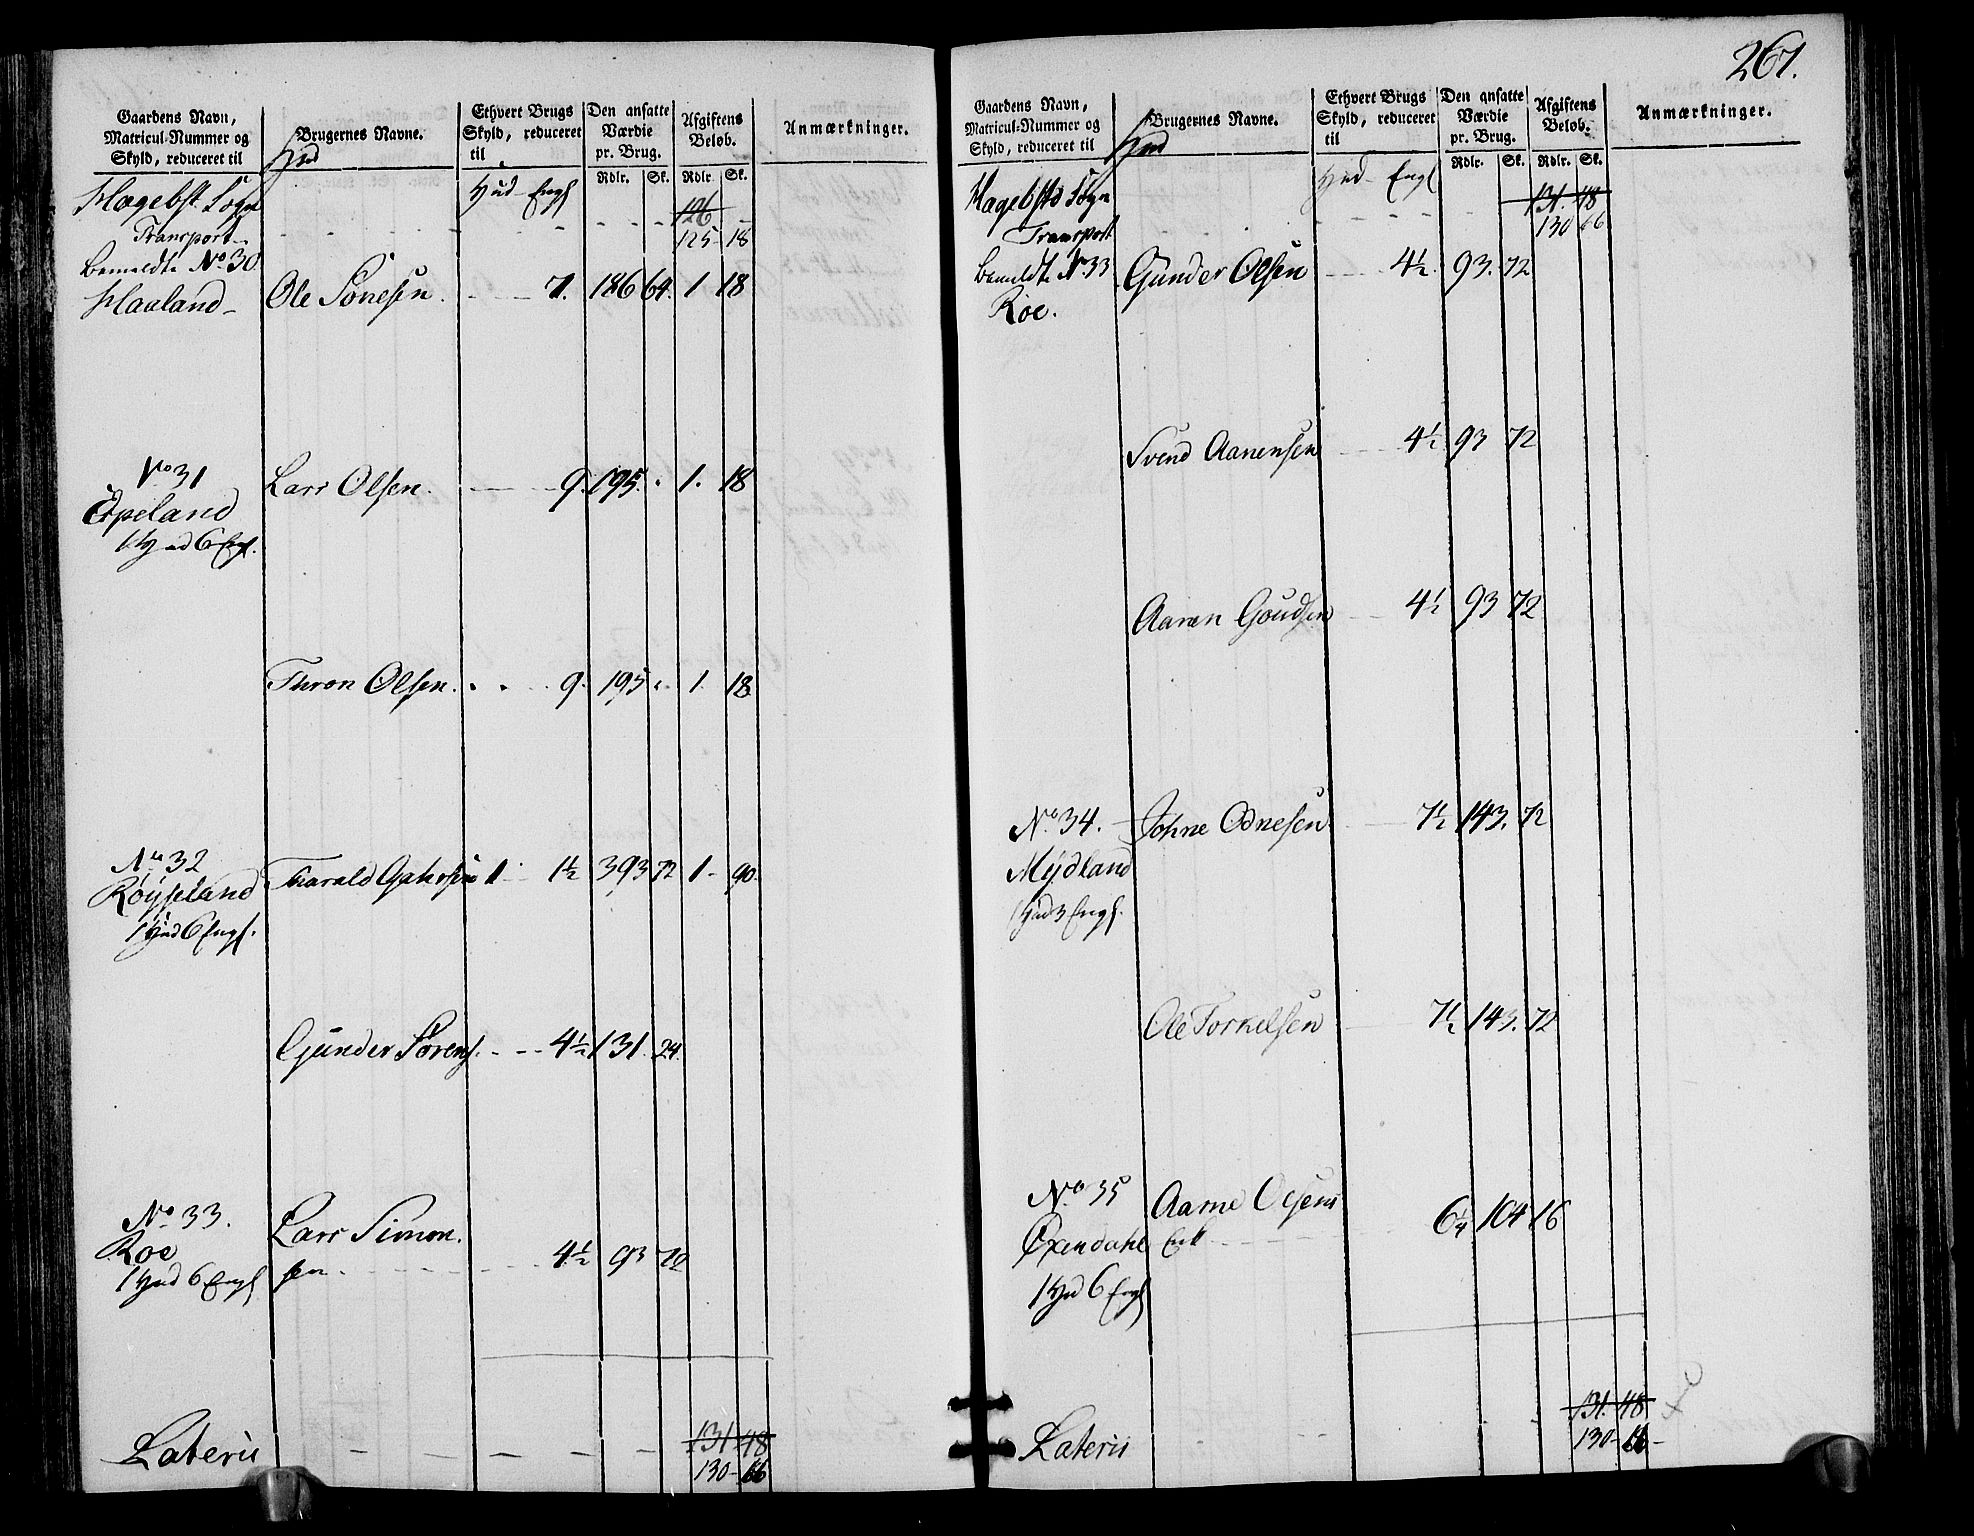 Gaardens Navn, Matricul-Nummer og Skyld, reduceret til Hud
Brugernes Navne.
Ethvert Brugs Skyld, reduceret til
Den ansatte Værdie pr. Brug.
Afgiftens Beløb.
Anmærkninger.
Rdlr. Sk. Rdlr. Sk.
Hud Engl
Hægebst. Sogn 126
Transport 125 18
bemeldte No. 30
Haaland Ole Sonesen 7. 186 64. 1 18
No 31 Lars Olsen. 9. 195. 1. 18
Espeland
1 Hud 6 Engl.
Thron Olsen. 9. 195 1. 18
No 32
Røyseland Tharald 1 1½ 393 72 1 90
1 Hud 6 Engl.
Gunder Sørens. 4½ 131. 24.
No. 33. Lars Simon-
Roe sen 4½ 93 72
1 Hud 6 Engl
Lateris 131 48
130 66
267.
Gaardens Navn, Matricul-Nummer og Skyld, reduceret til Hud
Brugernes Navne.
Ethvert Brugs Skyld, reduceret til
Den ansatte Værdie pr. Brug.
Afgiftens Beløb.
Anmærkninger.
Rdlr. Sk. Rdlr. Sk.
Hud Engl
Hægebsts Sogn 131. 48
Transport 130 66
bemeldte No 33 Gunder Olsen 4½. 93. 72
Roe.
Svend Aanensen 4½ 93 72
Aanen 4½ 93 72
No. 34. Johne Odnesen 7½ 143. 72
Mydland
1 Hud 3 Engl.
Ole Torkelsen 7½ 143. 72
No 35 Aarne Olsens
Oxendahl Enk 6¼ 104 16
1 Hud 6 Engl
Lateris 131. 48
130 66